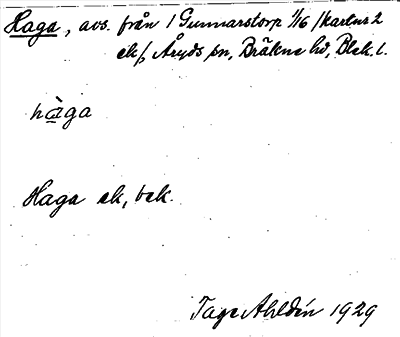 Haga, avs. från 1 Gunnarstorp 1/16 /kartns 2
ek/, Åryds sn, Bräkne hd, Blek. l.
hàga
Haga ek, bek.
Tage Ahldén 1929